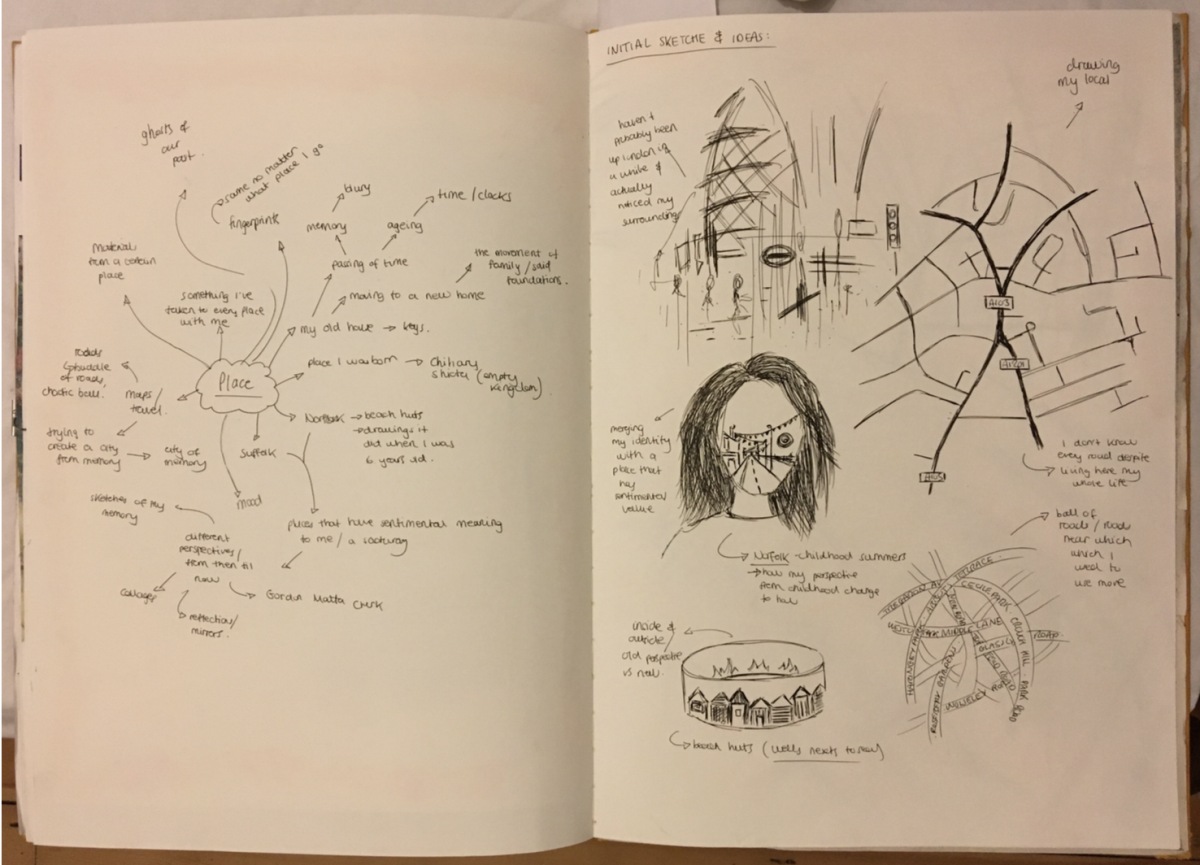 ghosts of
our
past.
same no matter
what place I go
fingerprints
blury
memory
time / clocks
ageing
passing of time
the movement of
family / said
foundations.
moving to a new home
my old house → keys.
Material
from a certain
place
something I've
taken to every place
with me
Place
place I was born → Chiharu
Shiota (empty
Kingdom)
roads
of roads,
chaotic ball.
maps/
travel.
trying to
create a city
from memory
city of
memory
Suffolk
Norfolk → beach huts
→ drawings it
did when I was
6 years old.
mood
places that have sentimental meaning
to me /
sketches of my
memory
different
perspectives/
from then til
now
collages
reflection/
mirrors.
Gordon Matta Clark
INITIAL SKETCHE & IDEAS:
haven't
probably been
up london in
a while &
actually
noticed my
surrounding
drawing
my local
A103
A103
I don't know
every road despite
living here my
whole life
merging
my identity
with a
place that
has
sentimental
value
Norfolk - childhood summers
→ how my perspective
from childhood change
to now
ball of
roads / roads
near which
which I
used to
use more
inside &
outside
old perspective
vs new.
TERRACE
CECILE PARK
CROUCH HILL
PARK ROAD
MIDDLE LANE
ROAD
beach huts (wells nexts to sea)